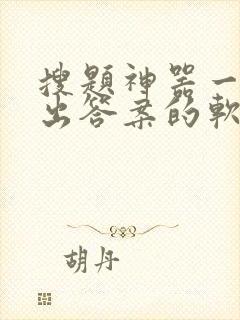 搜题神器一
出答案的軟
胡丹